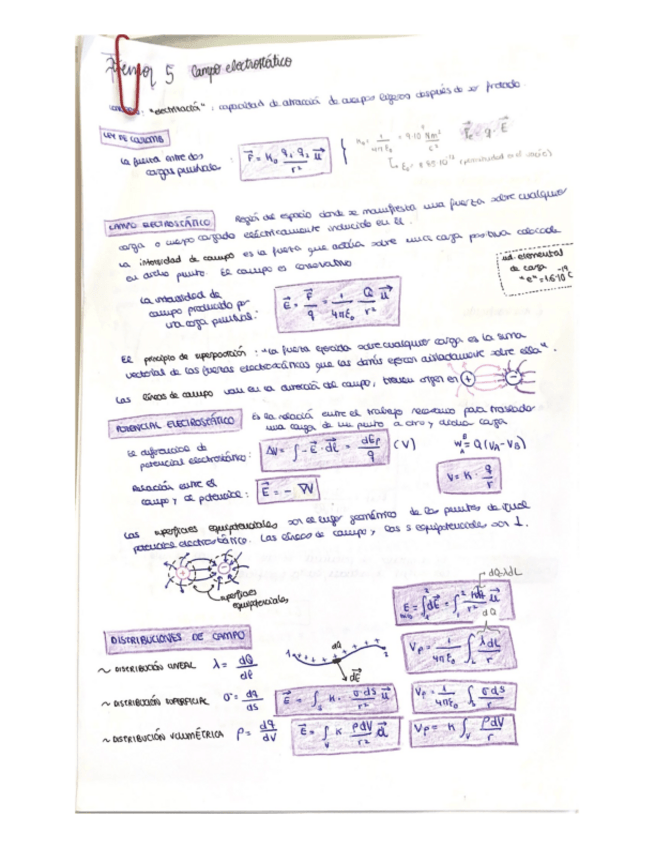 Tema 5 Campo electrostático
"electrización" : capacidad de atracción de cuerpos ligeros después de ser frotado.
LEY DE COULOMB
La fuerza entre dos cargas puntuales :
F⃗ = K₀ q₁ q₂ / r² u⃗
K₀ = 1 / 4πε₀ = 9·10⁹ Nm² / C²
F⃗e = q · E⃗
(permitividad en el vacío)
CAMPO ELECTROSTÁTICO Región del espacio donde se manifiesta una fuerza sobre cualquier
carga o cuerpo cargado eléctricamente inducido en él.
La intensidad de campo es la fuerza que actúa sobre una carga positiva colocada
en dicho punto. El campo es conservativo
ud. elemental
de carga
"e" = 1.6·10⁻¹⁹ C
La intensidad de
campo producido por
una carga puntual:
E⃗ = F⃗ / q = 1 / 4πε₀ Q / r² u⃗
El principio de superposición : "La fuerza ejercida sobre cualquier carga es la suma
vectorial de las fuerzas electrostáticas que las demás ejercen aisladamente sobre ella".
Las líneas de campo van en la dirección del campo, tienen origen en + y -
POTENCIAL ELECTROSTÁTICO Es la relación entre el trabajo necesario para trasladar
una carga de un punto a otro y dicha carga
La diferencia de
potencial electrostático :
ΔV = ∫ - E⃗ · dℓ⃗ = dEp / q (V)
W = Q (VA - VB)
V = K · q / r
Relación entre el
campo y el potencial :
E⃗ = - ∇V
Las superficies equipotenciales son el lugar geométrico de los puntos de igual
potencial electrostático. Las líneas de campo y las s equipotenciales son ⊥.
+ -
superficies
equipotenciales
dQ=λdL
E = ∫ dE⃗ = ∫ KdQ / r² u⃗
dQ
DISTRIBUCIONES DE CAMPO
Vp = 1 / 4πε₀ ∫L λdL / r
~ DISTRIBUCIÓN LINEAL λ = dQ / dℓ
1 dQ 2
dE⃗
~ DISTRIBUCIÓN SUPERFICIAL σ = dq / ds
E⃗ = ∫s K · σ·ds / r² u⃗
Vp = 1 / 4πε₀ · ∫s σds / r
~ DISTRIBUCIÓN VOLUMÉTRICA ρ = dq / dV
E⃗ = ∫v K ρdV / r² u⃗
Vp = K ∫v ρdV / r